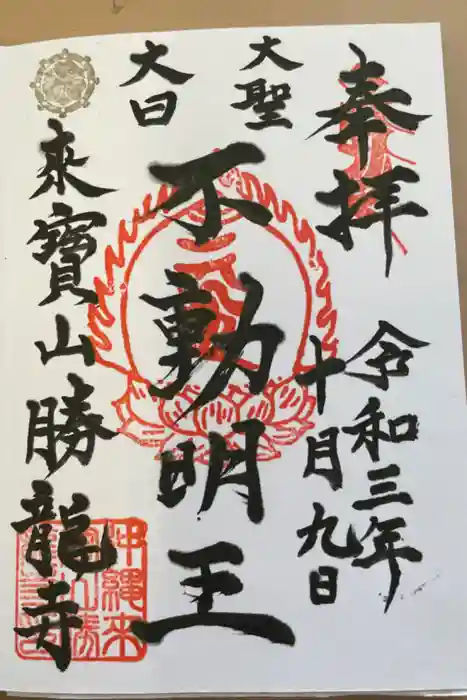 奉拝
令和三年
十月九日
大聖
不動明王
大日
來寶山勝龍寺
沖縄來